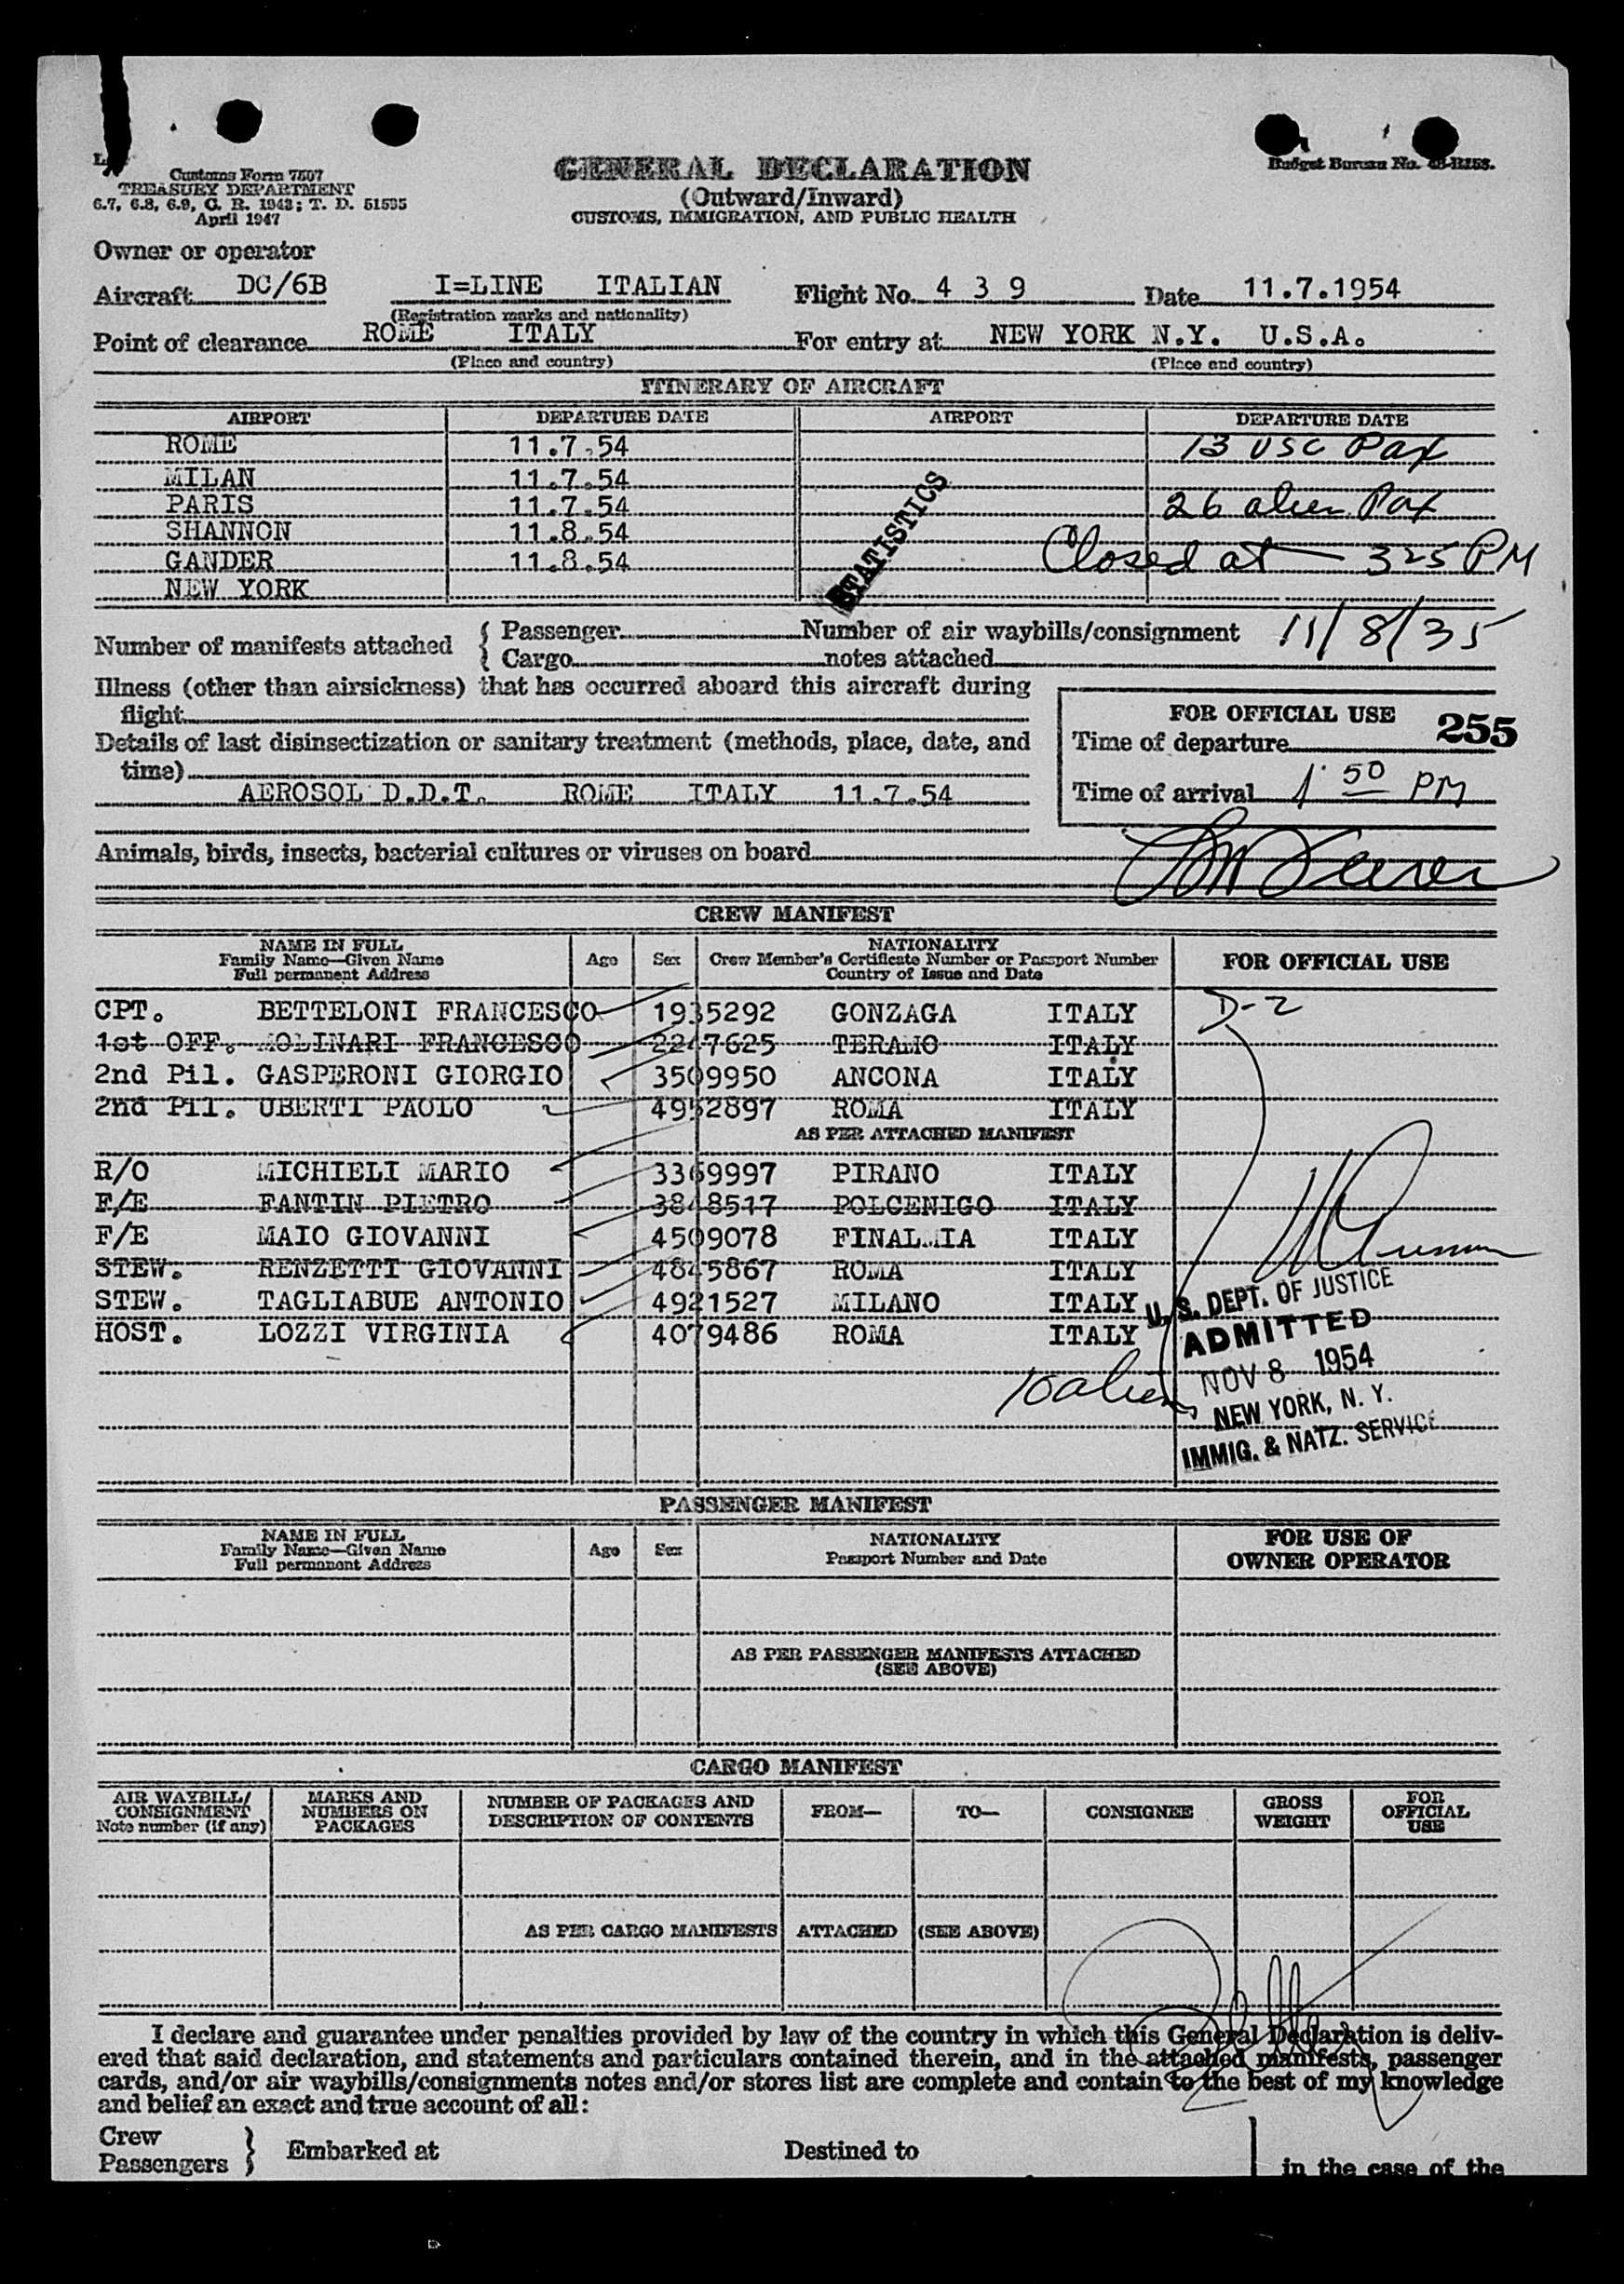 Customs Form 7507
TREASURY DEPARTMENT
6.7, 6.8, 6.9, C. R. 1943; T. D. 51535
April 1947
GENERAL DECLARATION
(Outward/Inward)
CUSTOMS, IMMIGRATION, AND PUBLIC HEALTH
Budget Bureau No.
Owner or operator
Aircraft DC/6B I=LINE ITALIAN Flight No. 4 3 9 Date 11.7.1954
(Registration marks and nationality)
Point of clearance ROME ITALY For entry at NEW YORK N.Y. U.S.A.
(Place and country) (Place and country)
ITINERARY OF AIRCRAFT
AIRPORT DEPARTURE DATE AIRPORT DEPARTURE DATE
ROME 11.7.54 13 USC Pax
MILAN 11.7.54
PARIS 11.7.54 26 alien Pax
SHANNON 11.8.54
GANDER 11.8.54 Closed at — 325 PM
NEW YORK
STATISTICS
Number of manifests attached { Passenger Number of air waybills/consignment 11/8/35
{ Cargo notes attached
Illness (other than airsickness) that has occurred aboard this aircraft during
flight
Details of last disinsectization or sanitary treatment (methods, place, date, and
time)
AEROSOL D.D.T. ROME ITALY 11.7.54
FOR OFFICIAL USE 255
Time of departure
Time of arrival 1 50 PM
Animals, birds, insects, bacterial cultures or viruses on board
CREW MANIFEST
NAME IN FULL
Family Name—Given Name
Full permanent Address
Age
Sex
NATIONALITY
Crew Member's Certificate Number or Passport Number
Country of Issue and Date
FOR OFFICIAL USE
CPT. BETTELONI FRANCESCO 1935292 GONZAGA ITALY D-2
1st OFF. MOLINARI FRANCESCO 2247625 TERAMO ITALY
2nd Pil. GASPERONI GIORGIO 3509950 ANCONA ITALY
2nd Pil. UBERTI PAOLO 4952897 ROMA ITALY
AS PER ATTACHED MANIFEST
R/O MICHIELI MARIO 3369997 PIRANO ITALY
F/E FANTIN PIETRO 3848517 POLCENIGO ITALY
F/E MAIO GIOVANNI 4509078 ITALY
STEW. RENZETTI GIOVANNI 4845867 ROMA ITALY
STEW. TAGLIABUE ANTONIO 4921527 MILANO ITALY
HOST. LOZZI VIRGINIA 4079486 ROMA ITALY
10 aliens
U. S. DEPT. OF JUSTICE
ADMITTED
NOV 8 1954
NEW YORK, N. Y.
IMMIG. & NATZ. SERVICE
PASSENGER MANIFEST
NAME IN FULL
Family Name—Given Name
Full permanent Address
Age
Sex
NATIONALITY
Passport Number and Date
FOR USE OF
OWNER OPERATOR
AS PER PASSENGER MANIFESTS ATTACHED
(SEE ABOVE)
CARGO MANIFEST
AIR WAYBILL/
CONSIGNMENT
Note number (if any)
MARKS AND
NUMBERS ON
PACKAGES
NUMBER OF PACKAGES AND
DESCRIPTION OF CONTENTS
FROM—
TO—
CONSIGNEE
GROSS
WEIGHT
FOR
OFFICIAL
USE
AS PER CARGO MANIFESTS ATTACHED (SEE ABOVE)
I declare and guarantee under penalties provided by law of the country in which this General Declaration is deliv-
ered that said declaration, and statements and particulars contained therein, and in the attached manifests, passenger
cards, and/or air waybills/consignments notes and/or stores list are complete and contain to the best of my knowledge
and belief an exact and true account of all:
Crew
Passengers } Embarked at Destined to
in the case of the